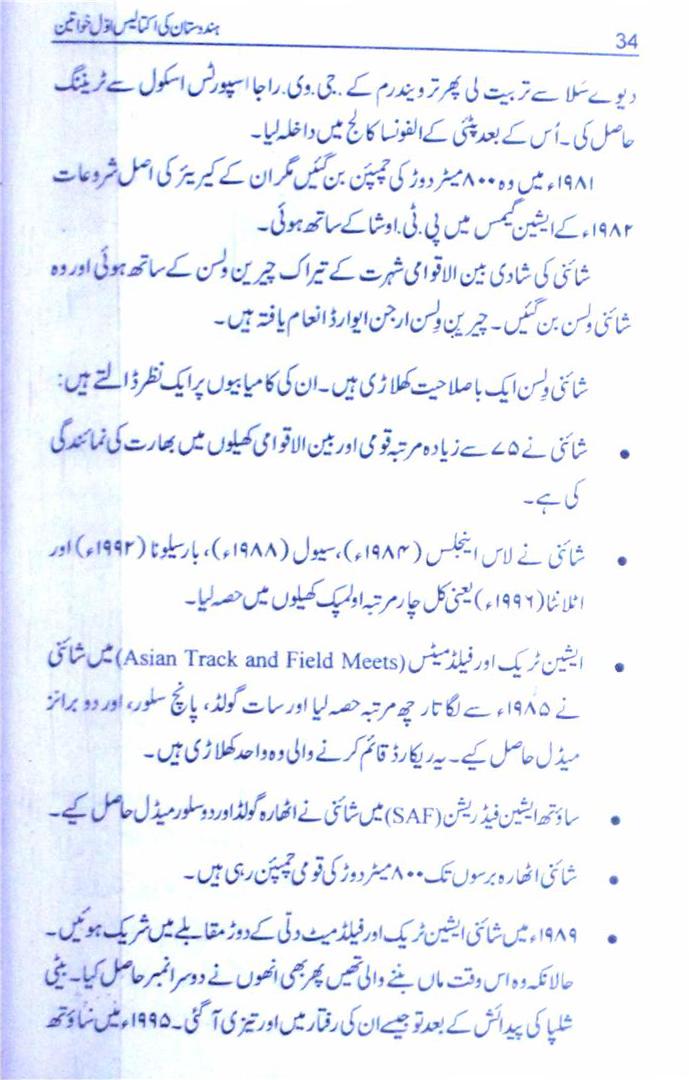 ہندوستان کی اکتالیس اوّل خواتین
34
دیوے سَلا سے تربیت لی پھر تروِیندرم کے .جی.وی.راجا اسپورٹس اسکول سے ٹریننگ
حاصل کی۔ اُس کے بعد پٹنی کے الفونسا کالج میں داخلہ لیا۔
۱۹۸۱ء میں وہ ۸۰۰ میٹر دوڑ کی چمپئن بن گئیں مگر ان کے کیریئر کی اصل شروعات
۱۹۸۲ء کے ایشین گیمس میں پی.ٹی.اوشا کے ساتھ ہوئی۔
شائنی کی شادی بین الاقوامی شہرت کے تیراک چیرین ولسن کے ساتھ ہوئی اور وہ
شائنی ولسن بن گئیں۔ چیرین وِلسن ارجن ایوارڈ انعام یافتہ ہیں۔
شائنی وِلسن ایک باصلاحیت کھلاڑی ہیں۔ ان کی کامیابیوں پر ایک نظر ڈالتے ہیں:
• شائنی نے ۷۵ سے زیادہ مرتبہ قومی اور بین الاقوامی کھیلوں میں بھارت کی نمائندگی
کی ہے۔
• شائنی نے لاس اینجلس (۱۹۸۴ء)، سیول (۱۹۸۸ء)، بارسیلونا (۱۹۹۲ء) اور
اٹلانٹا (۱۹۹۶ء) یعنی کل چار مرتبہ اولمپک کھیلوں میں حصہ لیا۔
• ایشین ٹریک اور فیلڈ میٹس (Asian Track and Field Meets) میں شائنی
نے ۱۹۸۵ء سے لگاتار چھ مرتبہ حصہ لیا اور سات گولڈ، پانچ سلور، اور دو برانز
میڈل حاصل کیے۔ یہ ریکارڈ قائم کرنے والی وہ واحد کھلاڑی ہیں۔
• ساؤتھ ایشین فیڈریشن (SAF) میں شائنی نے اٹھارہ گولڈ اور دو سلور میڈل حاصل کیے۔
• شائنی اٹھارہ برسوں تک ۸۰۰ میٹر دوڑ کی قومی چمپئن رہی ہیں۔
• ۱۹۸۹ء میں شائنی ایشین ٹریک اور فیلڈ میٹ دلّی کے دوڑ مقابلے میں شریک ہوئیں۔
حالانکہ وہ اس وقت ماں بننے والی تھیں پھر بھی انھوں نے دوسرا نمبر حاصل کیا۔ بیٹی
شلپا کی پیدائش کے بعد تو جیسے ان کی رفتار میں اور تیزی آگئی۔ ۱۹۹۵ء میں ساؤتھ